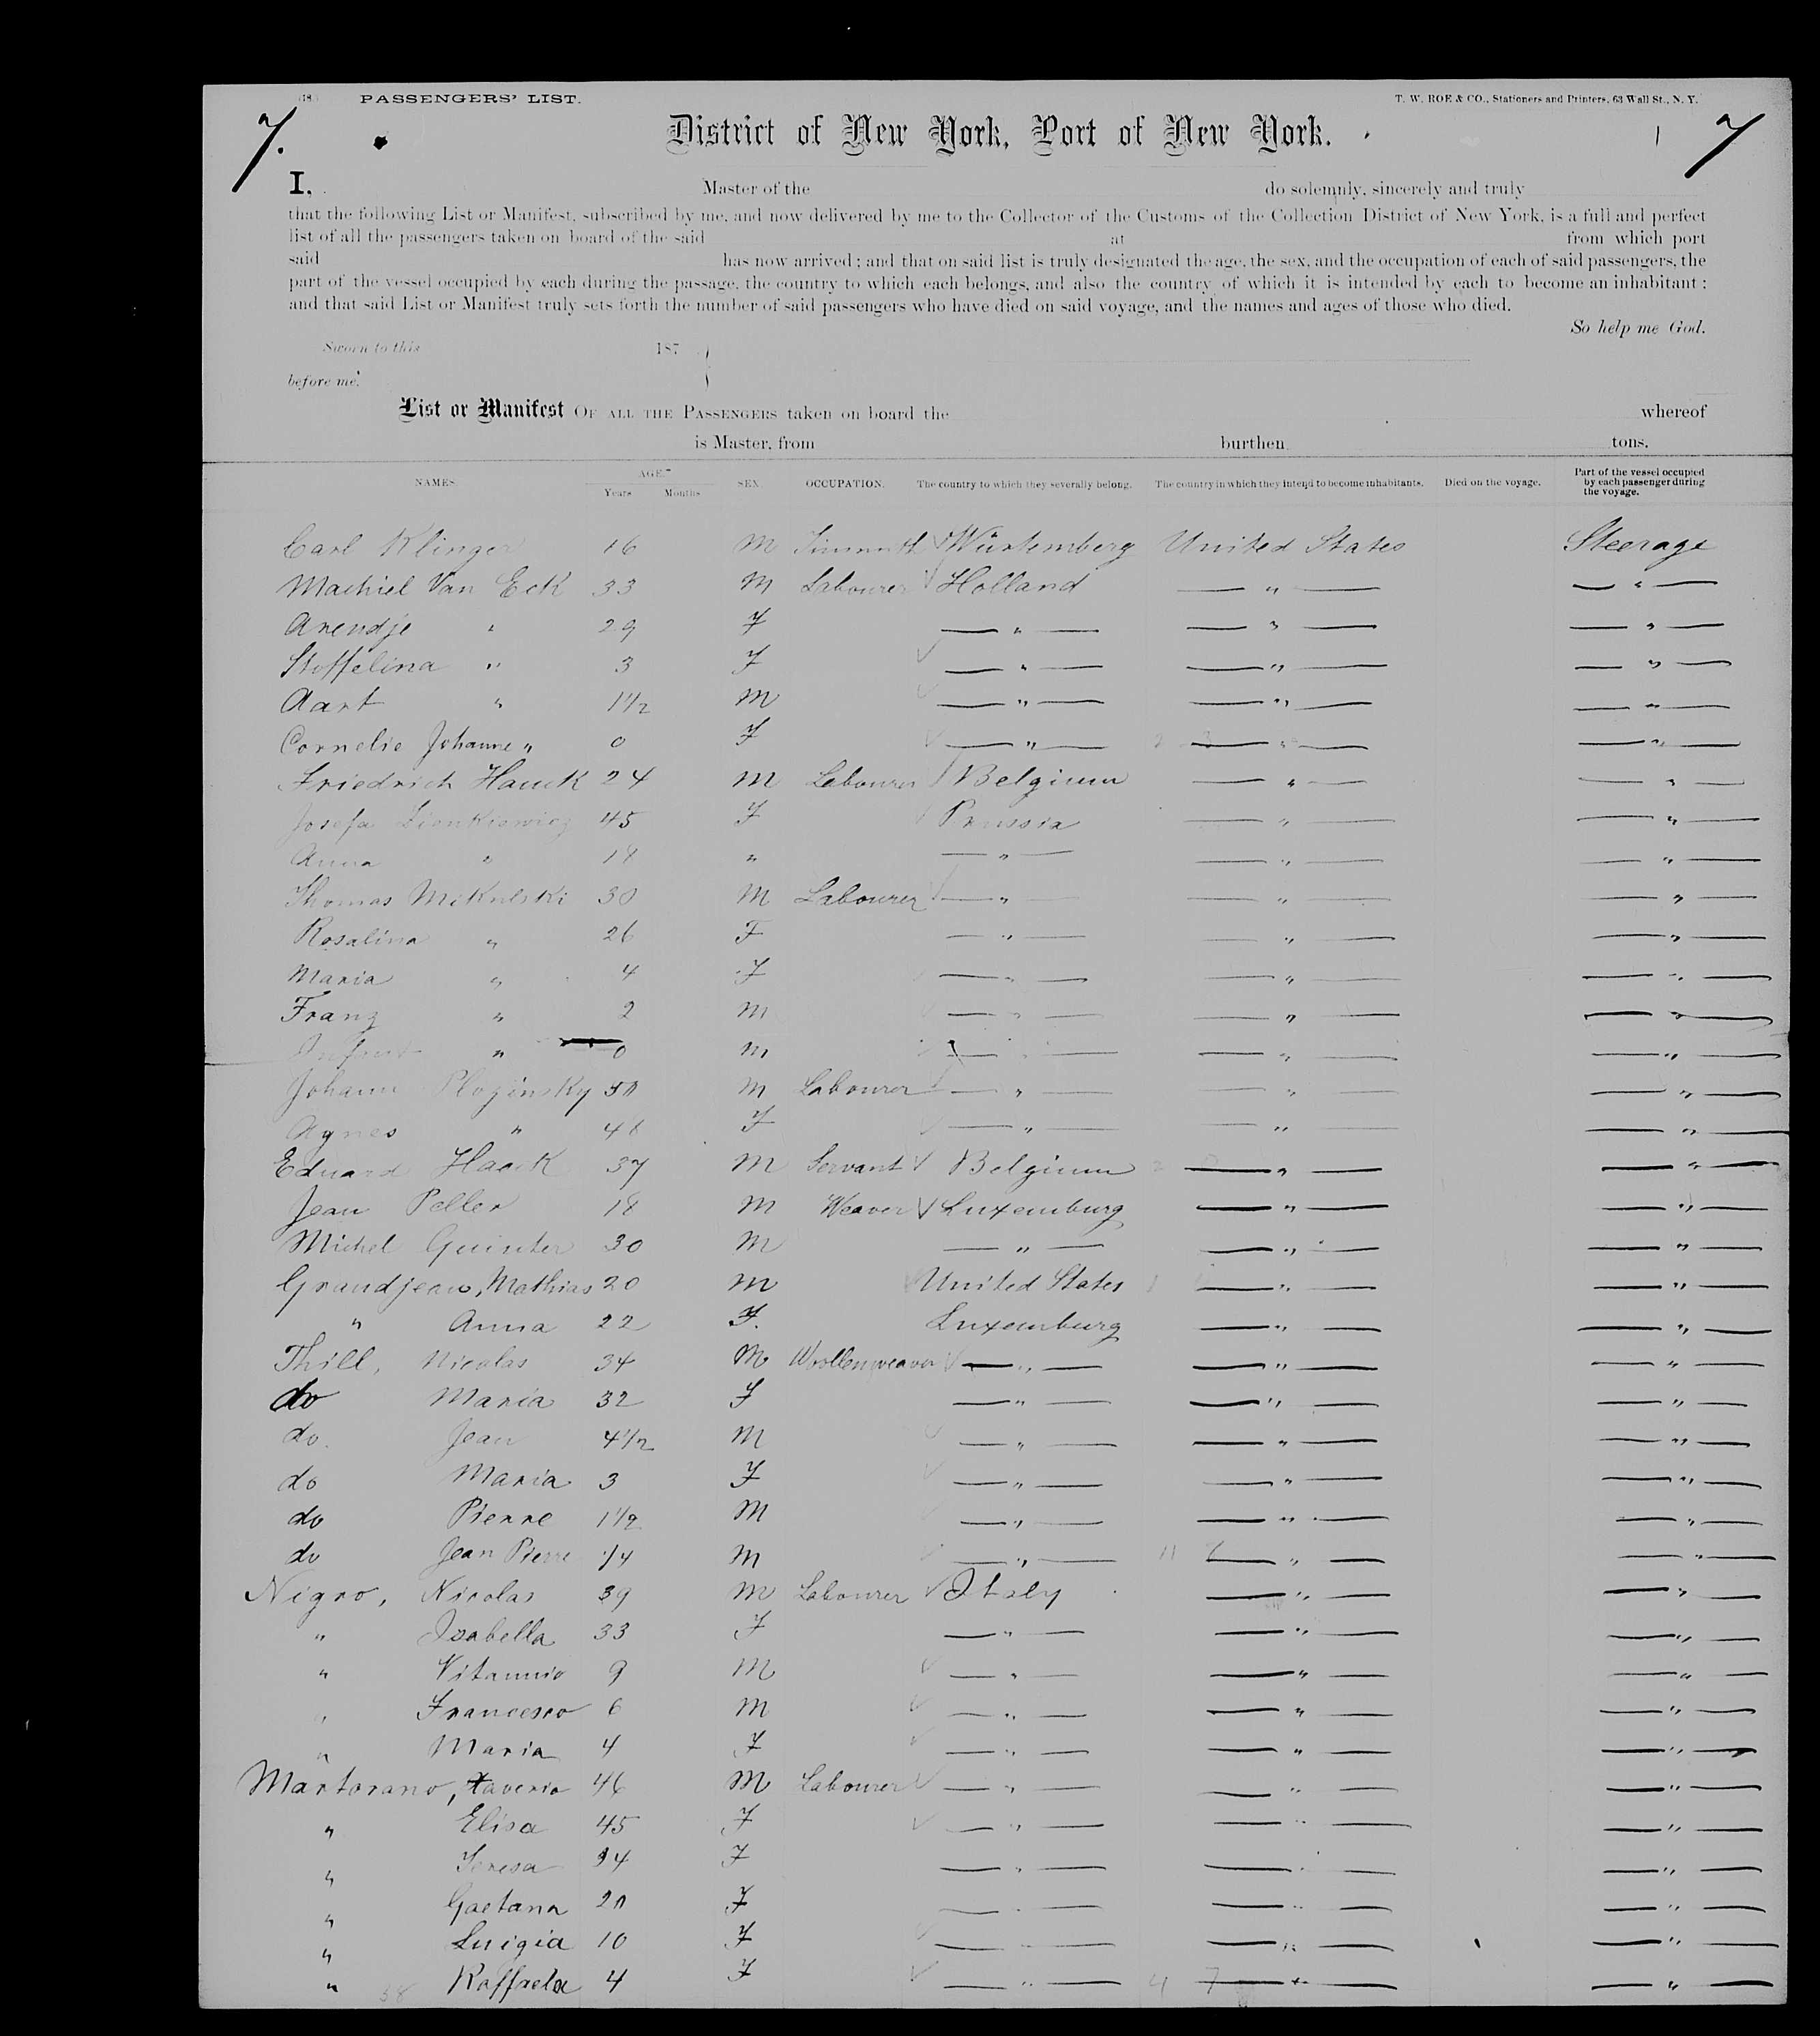 7. PASSENGERS' LIST. T. W. ROE & CO., Stationers and Printers, 63 Wall St., N. Y. 7
District of New York, Port of New York.
I, Master of the do solemnly, sincerely and truly
that the following List or Manifest, subscribed by me, and now delivered by me to the Collector of the Customs of the Collection District of New York, is a full and perfect
list of all the passengers taken on board of the said at from which port
said has now arrived; and that on said list is truly designated the age, the sex, and the occupation of each of said passengers, the
part of the vessel occupied by each during the passage, the country to which each belongs, and also the country of which it is intended by each to become an inhabitant;
and that said List or Manifest truly sets forth the number of said passengers who have died on said voyage, and the names and ages of those who died.
So help me God.
Sworn to this 187
before me.
List or Manifest OF ALL THE PASSENGERS taken on board the whereof
is Master, from burthen tons.
NAMES. AGE. Years Months SEX. OCCUPATION. The country to which they severally belong. The country in which they intend to become inhabitants. Died on the voyage. Part of the vessel occupied by each passenger during the voyage.
Carl Klinger 16 M Würtemberg United States Steerage
Machiel Van Eck 33 M Labourer Holland — " — — " —
Arendje " 29 F — " — — " — — " —
Stoffelina " 3 F — " — — " — — " —
Aart " 1 1/2 M — " — — " — — " —
Cornelie Johanne " 0 F — " — — " — — " —
Friedrich Hauck 24 M Labourer Belgium — " — — " —
Josefa 45 F Prussia — " — — " —
Anna " 18 " — " — — " — — " —
Thomas Mikulski 30 M Labourer — " — — " — — " —
Rosalina " 26 F — " — — " — — " —
Maria " 4 F — " — — " — — " —
Franz " 2 M — " — — " — — " —
Infant " 0 M — " — — " — — " —
Johann Plozinsky 50 M Labourer — " — — " — — " —
Agnes " 46 F — " — — " — — " —
Eduard Haack 37 M Servant Belgium — " — — " —
Jean Peller 18 M Weaver Luxemburg — " — — " —
Michel Guinter 30 M — " — — " — — " —
Grandjean, Mathias 20 M United States — " — — " —
" Anna 22 F. Luxemburg — " — — " —
Thill, Nicolas 34 M Woollenweaver — " — — " — — " —
do Maria 32 F — " — — " — — " —
do. Jean 4 1/2 M — " — — " — — " —
do Maria 3 F — " — — " — — " —
do Pierre 1 1/2 M — " — — " — — " —
do Jean Pierre 1/4 M — " — — " — — " —
Nigro, Nicolas 39 M Labourer Italy — " — — " —
" Isabella 33 F — " — — " — — " —
" Vitaunio 9 M — " — — " — — " —
" Francesco 6 M — " — — " — — " —
" Maria 4 F — " — — " — — " —
Martorano, Xaverio 46 M Labourer — " — — " — — " —
" Elisa 45 F — " — — " — — " —
" Teresa F — " — — " — — " —
" Gaetana 20 F — " — — " — — " —
" Luigia 10 F — " — — " — — " —
" Raffaela 4 F — " — — " — — " —